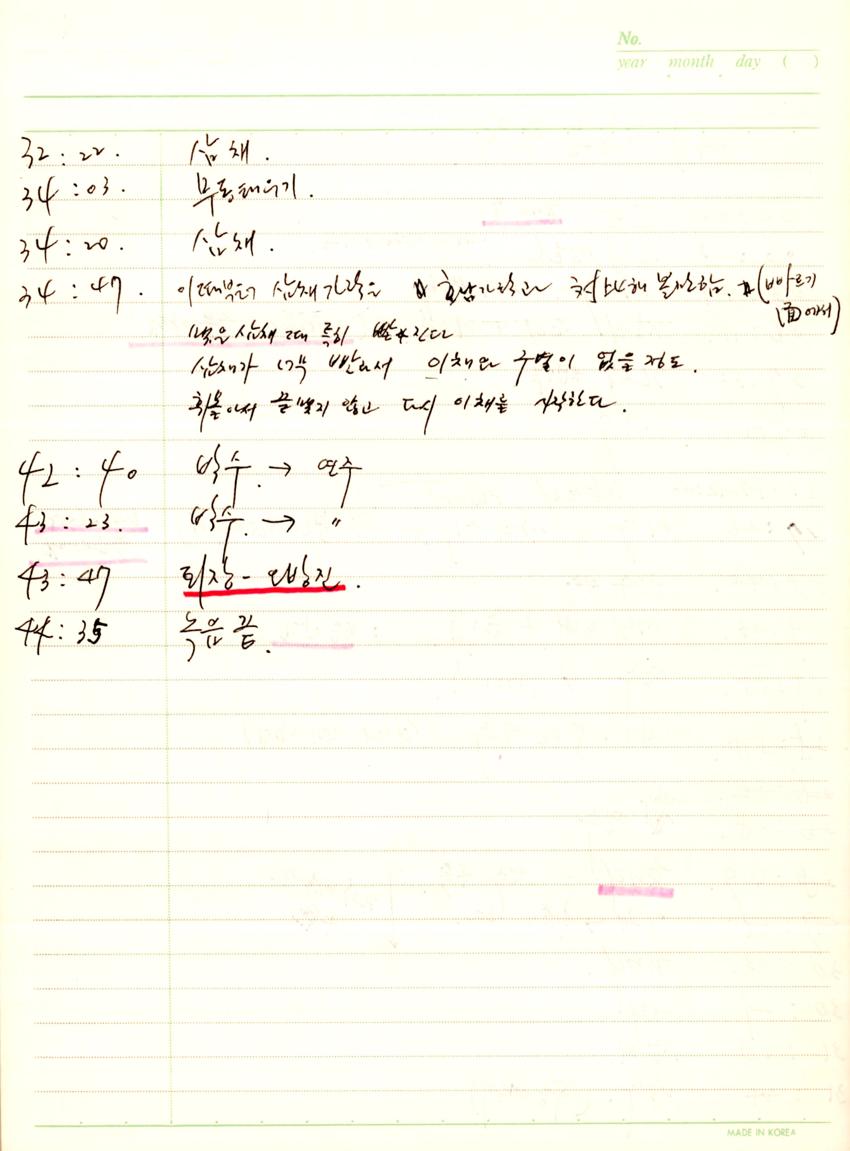 No.
year month day ( )
32 : 22. 삼채.
34 : 03. 부둥태우기.
34 : 20. 삼채.
34 : 47. 이때부터 삼채가락을 호남가락과 해볼만함. (빠르기
面에서)
맺은삼채 때 특히 빨라진다
삼채가 너무 빨라서 이채와 구별이 없을 정도.
휘몰아서 끝맺지 않고 다시 이채를 시작한다.
42 : 40 박수. → 연주
43 : 23. 박수. → 〃
43 : 47 퇴장 - 오방진.
44 : 35 녹음 끝.
MADE IN KOREA